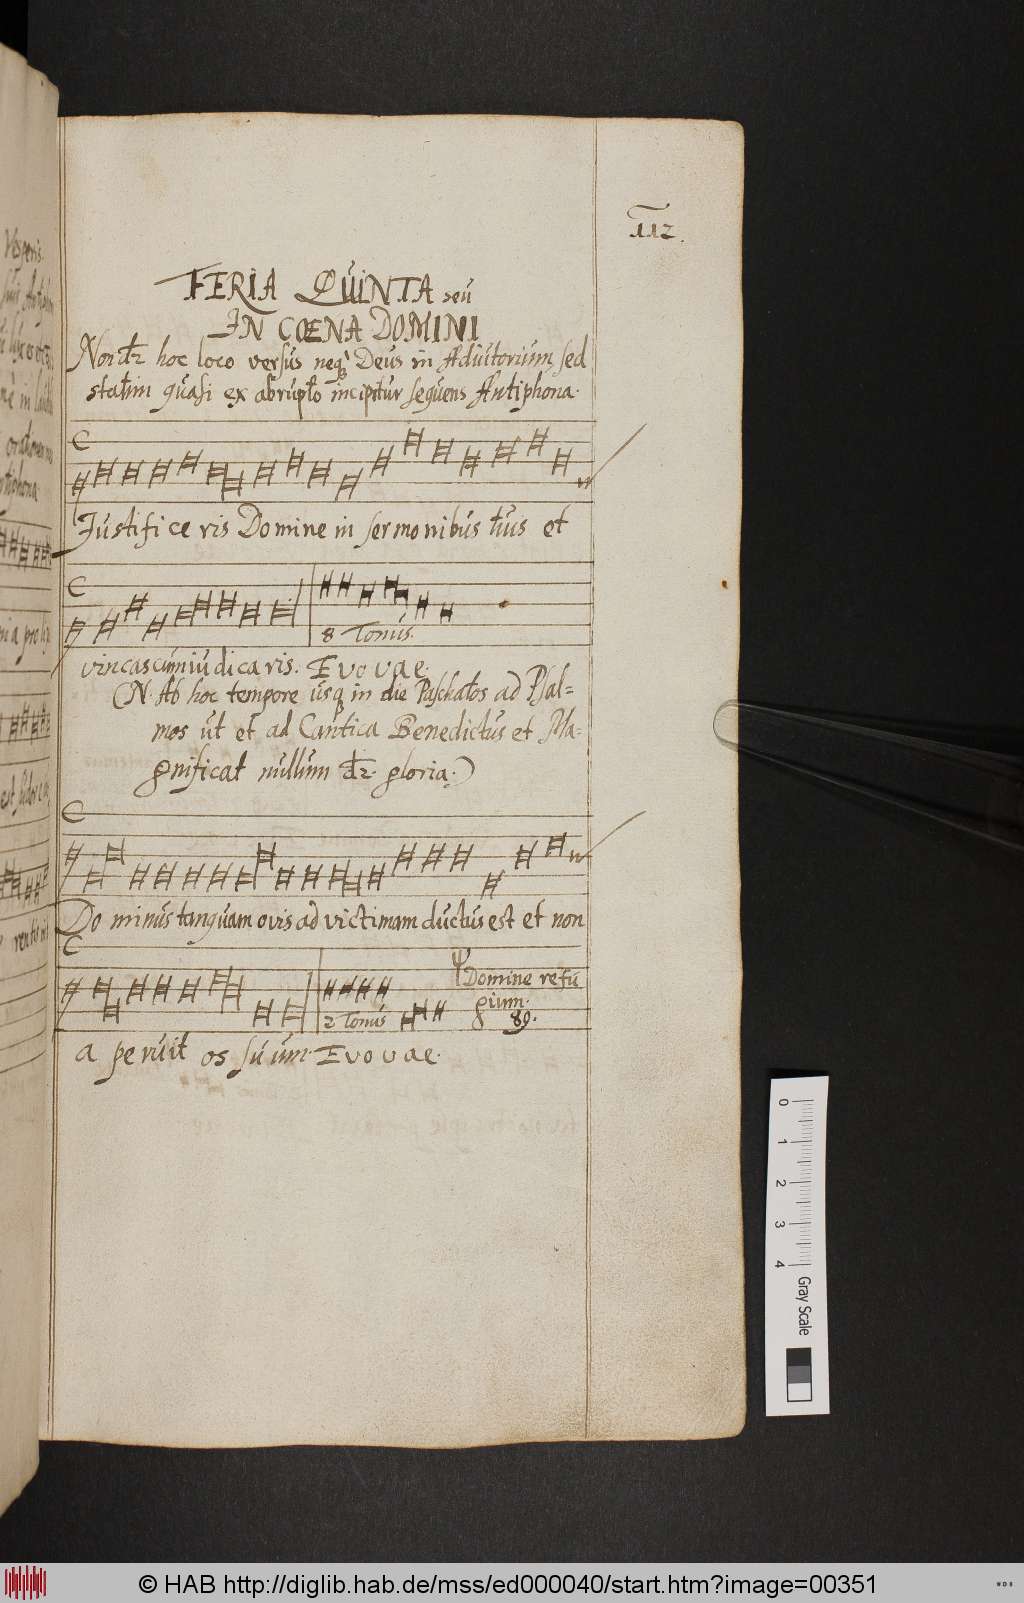 112.
FERIA QUINTA seu
IN COENA DOMINI
Non dr hoc loco versus neq Deus in Adiutorium sed
statim quasi ex abrupto incipitur sequens Antiphona.
C
Justifice ris Domine in sermonibus tuis et
C
8 Tonus.
vincas cum iudicaris. Evovae.
(N. Ab hoc tempore usq in die Paschatos ad Psal=
mos ut et ad Cantica Benedictus et Ma=
gnificat nullum dr. gloria.)
C
Do minus tanquam ovis ad victimam ductus est et non
C
2 Tonus
Domine refu
gium.
89.
a peruit os suum. Evovae.
Vesperis.
0 1 2 3 4 Gray Scale
© HAB http://diglib.hab.de/mss/ed000040/start.htm?image=00351